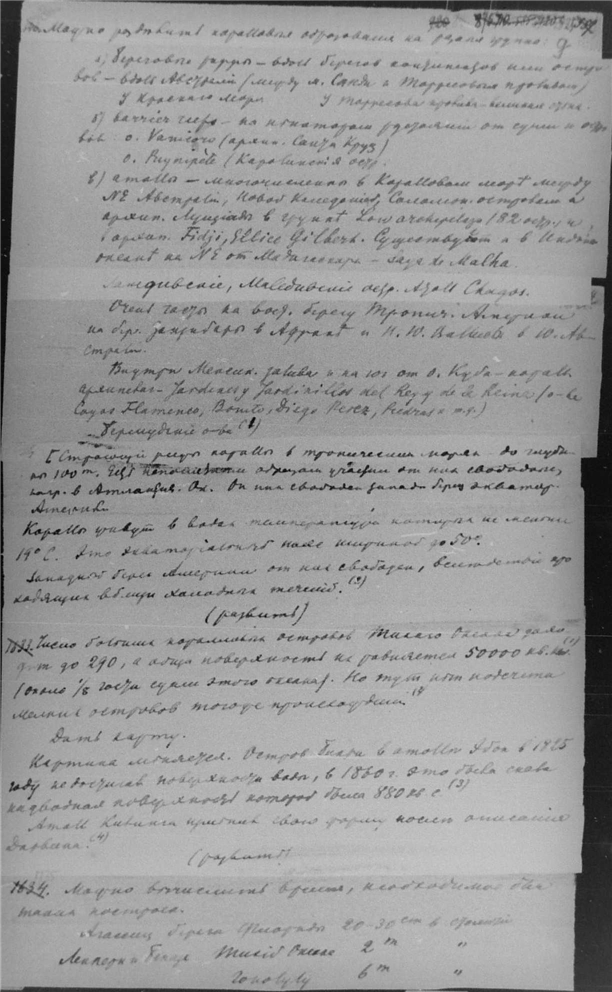 Можно разделить коралловые образования на группы:
а) береговые рифы – вдоль берегов континентов или остро-
вов – вдоль Австралии (между м. Санди и Торресовым проливом)
У Красного моря У Торресова пролива –
б) barrier reefs – на некотором расстоянии от суши и остро
вов: о. Vanicoro (архип. Санта Круз)
о. Puynipète (Каролинския остр.
в) атоллы – многочисленны в Коралловом море между
NE Австралии, Новой Каледонией, Соломон. островами и
архип. Луизиады в группе Low archipelago (82 остр.) и
в архип. Fidji, Ellice Gilbert. Существуют и в Индийск
океане на NE от Мадагаскара – Saya de Malha.
Лакедивские, Маледивские остр. Атолл Chagos.
Очень часты на вост. берегу Тропич. Америки
на бер. Занзибара в Африке и N. W. в Ю. Ав-
стралии.
Внутри Мексик. залива и на юг от о. Куба – коралл.
архипелаг – Jardines y Jardinillos del Rey y de la Reina (о-ва
Cayos Flamenco, Bonito, Diego Perez, Piedras и т.д.)
Бермудские о-ва (1)
[Строющие рифы кораллы в тропических морях до глуби-
ны 100 m. области от них свободны,
напр. в Атлантич. Ок. От них свободен запад. берег экватор.
Америки
Кораллы живут в водах температура которых не меньше
19° C. Это экваториальный пояс шириной до 50°.
Западный берег Америки от них свободен, вследствие про
ходящих вблизи холодных течений. (2)
(развить)
1633. Число больших коралловых островов Тихаго Океана дохо
дит до 290, а общая поверхность их равняется 50000 кв.
(около 1/8 части суши этого океана). Но тут нет подсчета
мелких островов того же происхождения
Дать карту.
Картина меняется. Остров в атолле Эбон в 1825
году не достигал поверхности воды, в 1860 г. это была
надводная поверхность которой была 880 кв. с. (3)
Атолл Килинга изменил свою форму после описания
Дарвина. (4)
(развить)
1634. Можно вычислить время, необходимое для
таких построек.
Агассиц берега Флориды 20–30 cm в столетие
Тихий Океан 2 m "
Гонолулу 6 m "